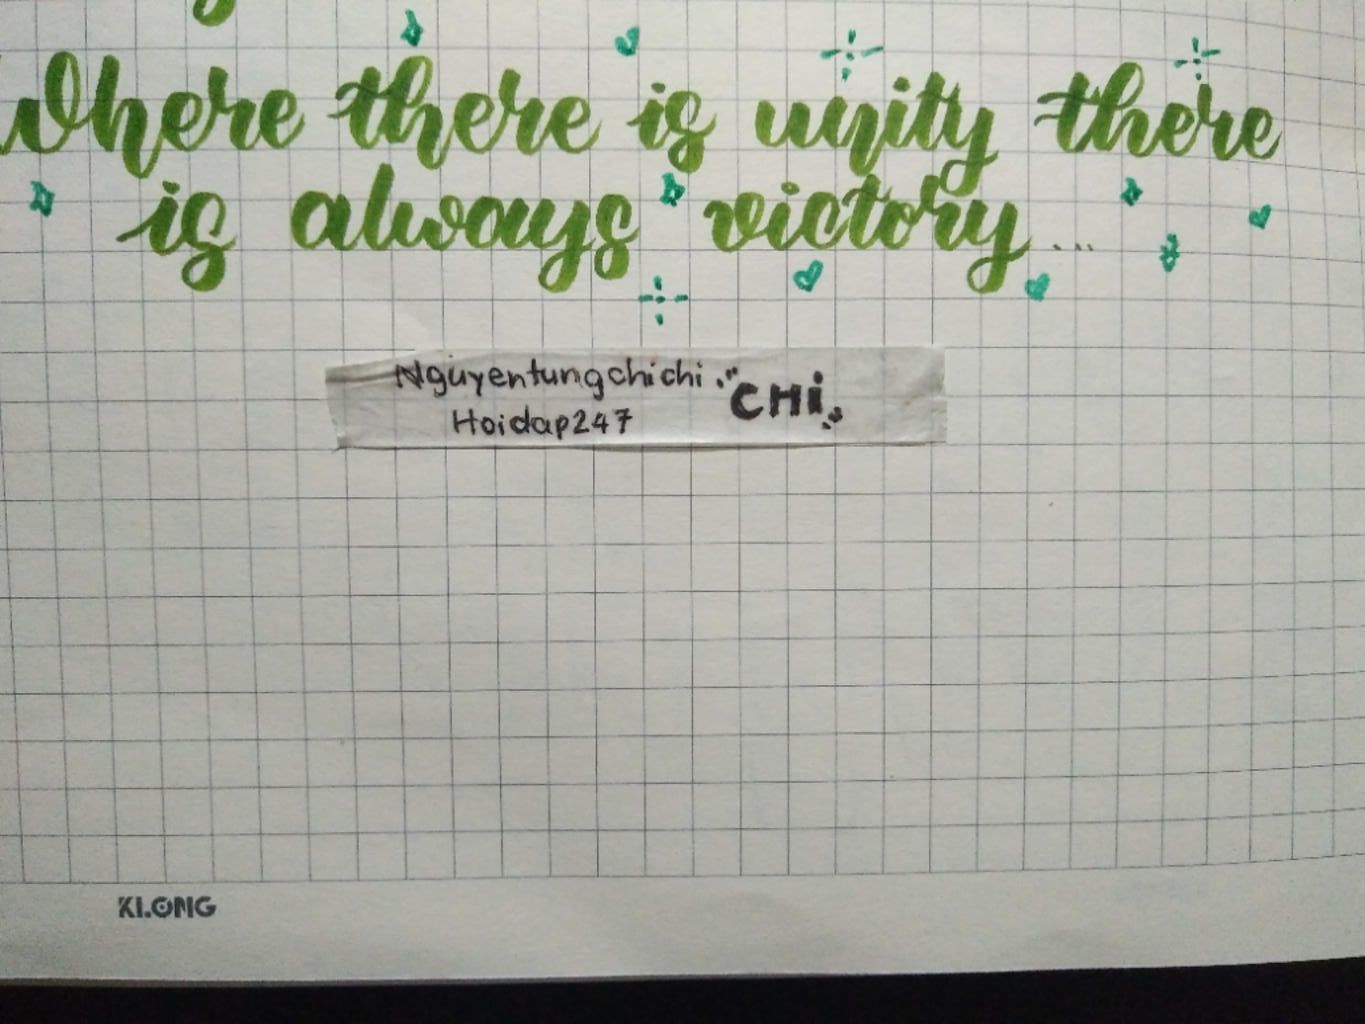 Where there is unity there
is always victory...
Nguyentungchichi
Hoidap247
CHi
KLONG